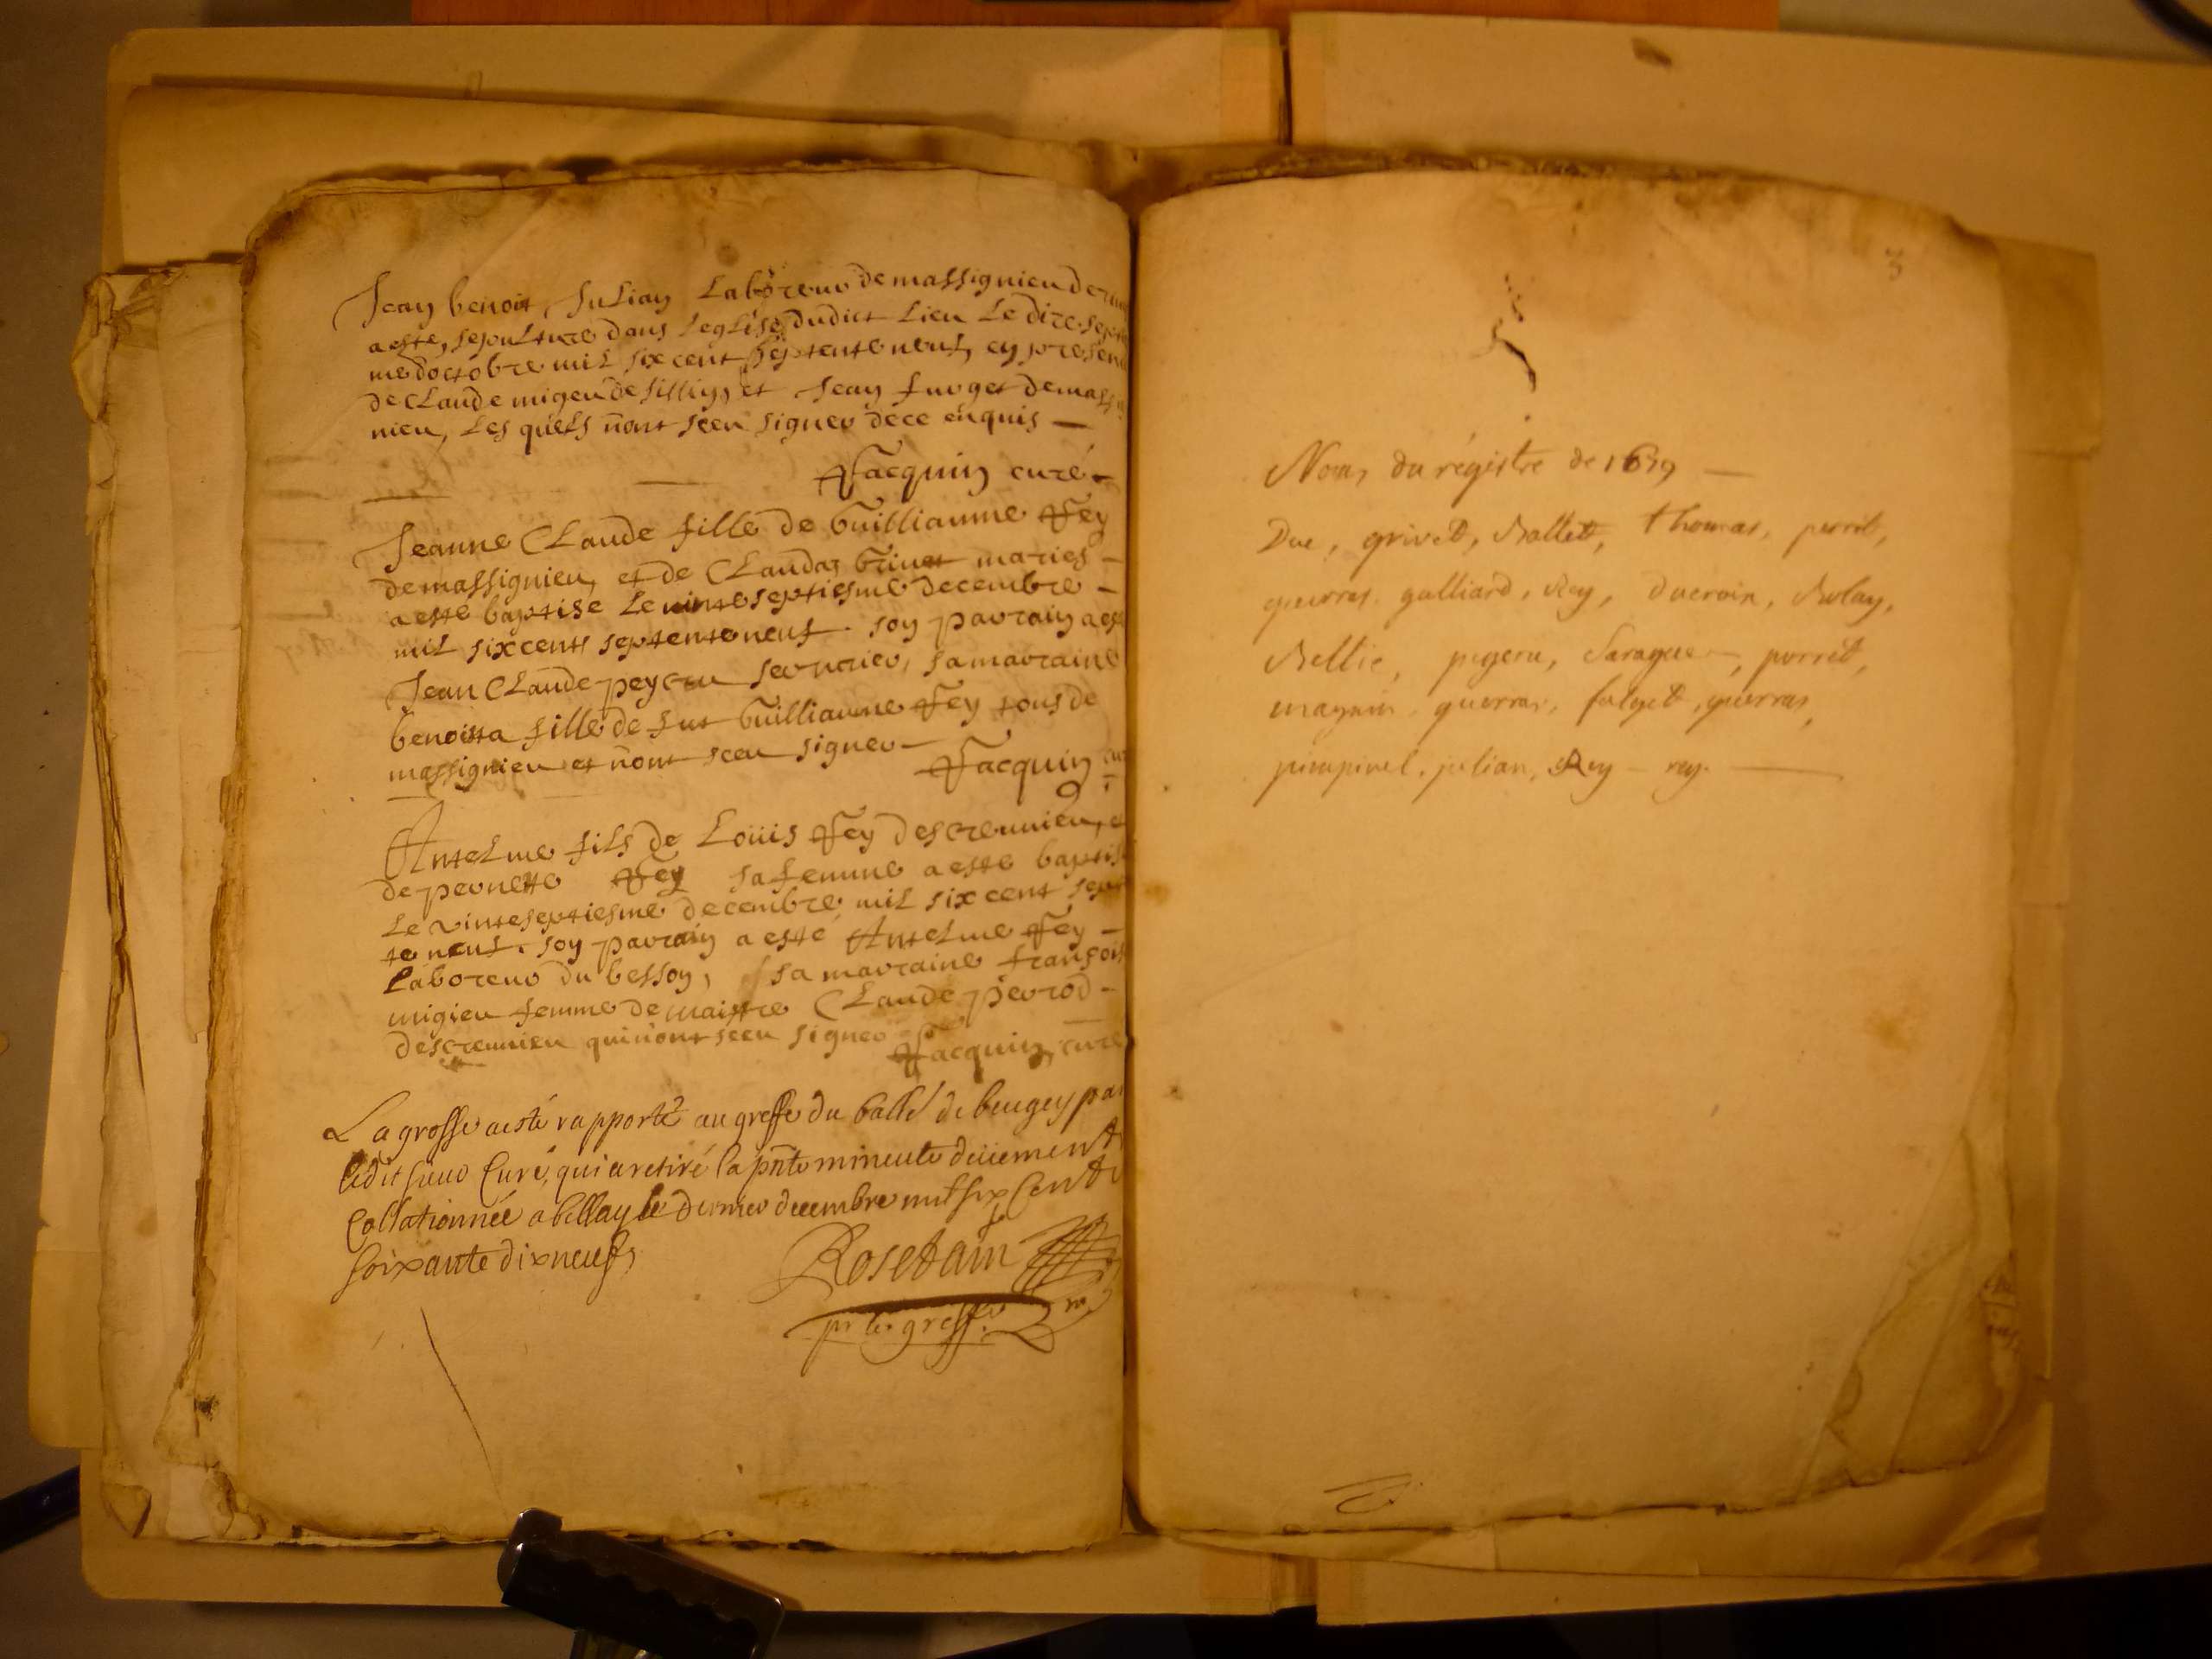 Jean benoit Julian Laboreur de massignieu de
a este, sepulture dans Leglise dudict Lieu Le dixesep
me doctobre mil six cent septente neuf, en presen
de Claude migeu de sillin, et Jean fuuget de massi
nieu, Les quels nont sceu signer de ce enquis —
Jacquin curé
Jeanne Claude fille de Guilliaume Fey
de massignieu, et de Claudaz Grinet maries —
a este baptise Le vinte septiesme decembre —
mil six cents septente neuf. son parrain a es
Jean Claude serrurier, sa marraine
benoitta fille de fut Guilliaume Fey tous de
massignieu et nont sceu signer — Jacquin cu
Antelme fils de Loüis Fey descreunieu, e
de pernette Fey sa femme a este baptis
Le vinte septiesme decembre mil six cent sep
te neuf. son parrain a esté Antelme Fey —
Laboreur du besson, sa marraine françois
migieu femme de maistre Claude perrod —
descreunieu qui nont sceu signer Jacquin, curé
La grosse a esté rapporté au greffe du balle de beugey par
ledit sieur Curé, qui a retiré la pnte mineute deüement
Collationnée a bellay le dernier decembre mil six Cent
soixante dix neuf,
Rosetain
pr le greffe
3
Noms du régistre de 1679 —
Duc, grivet, Ballet, thomas, perrit,
guerras. galliard, Rey, ducroix, Bolay,
Bellie, pigeru, perret,
magnin, guerras, fulget, guerras,
pimpinel, julian, Rey — rey. —